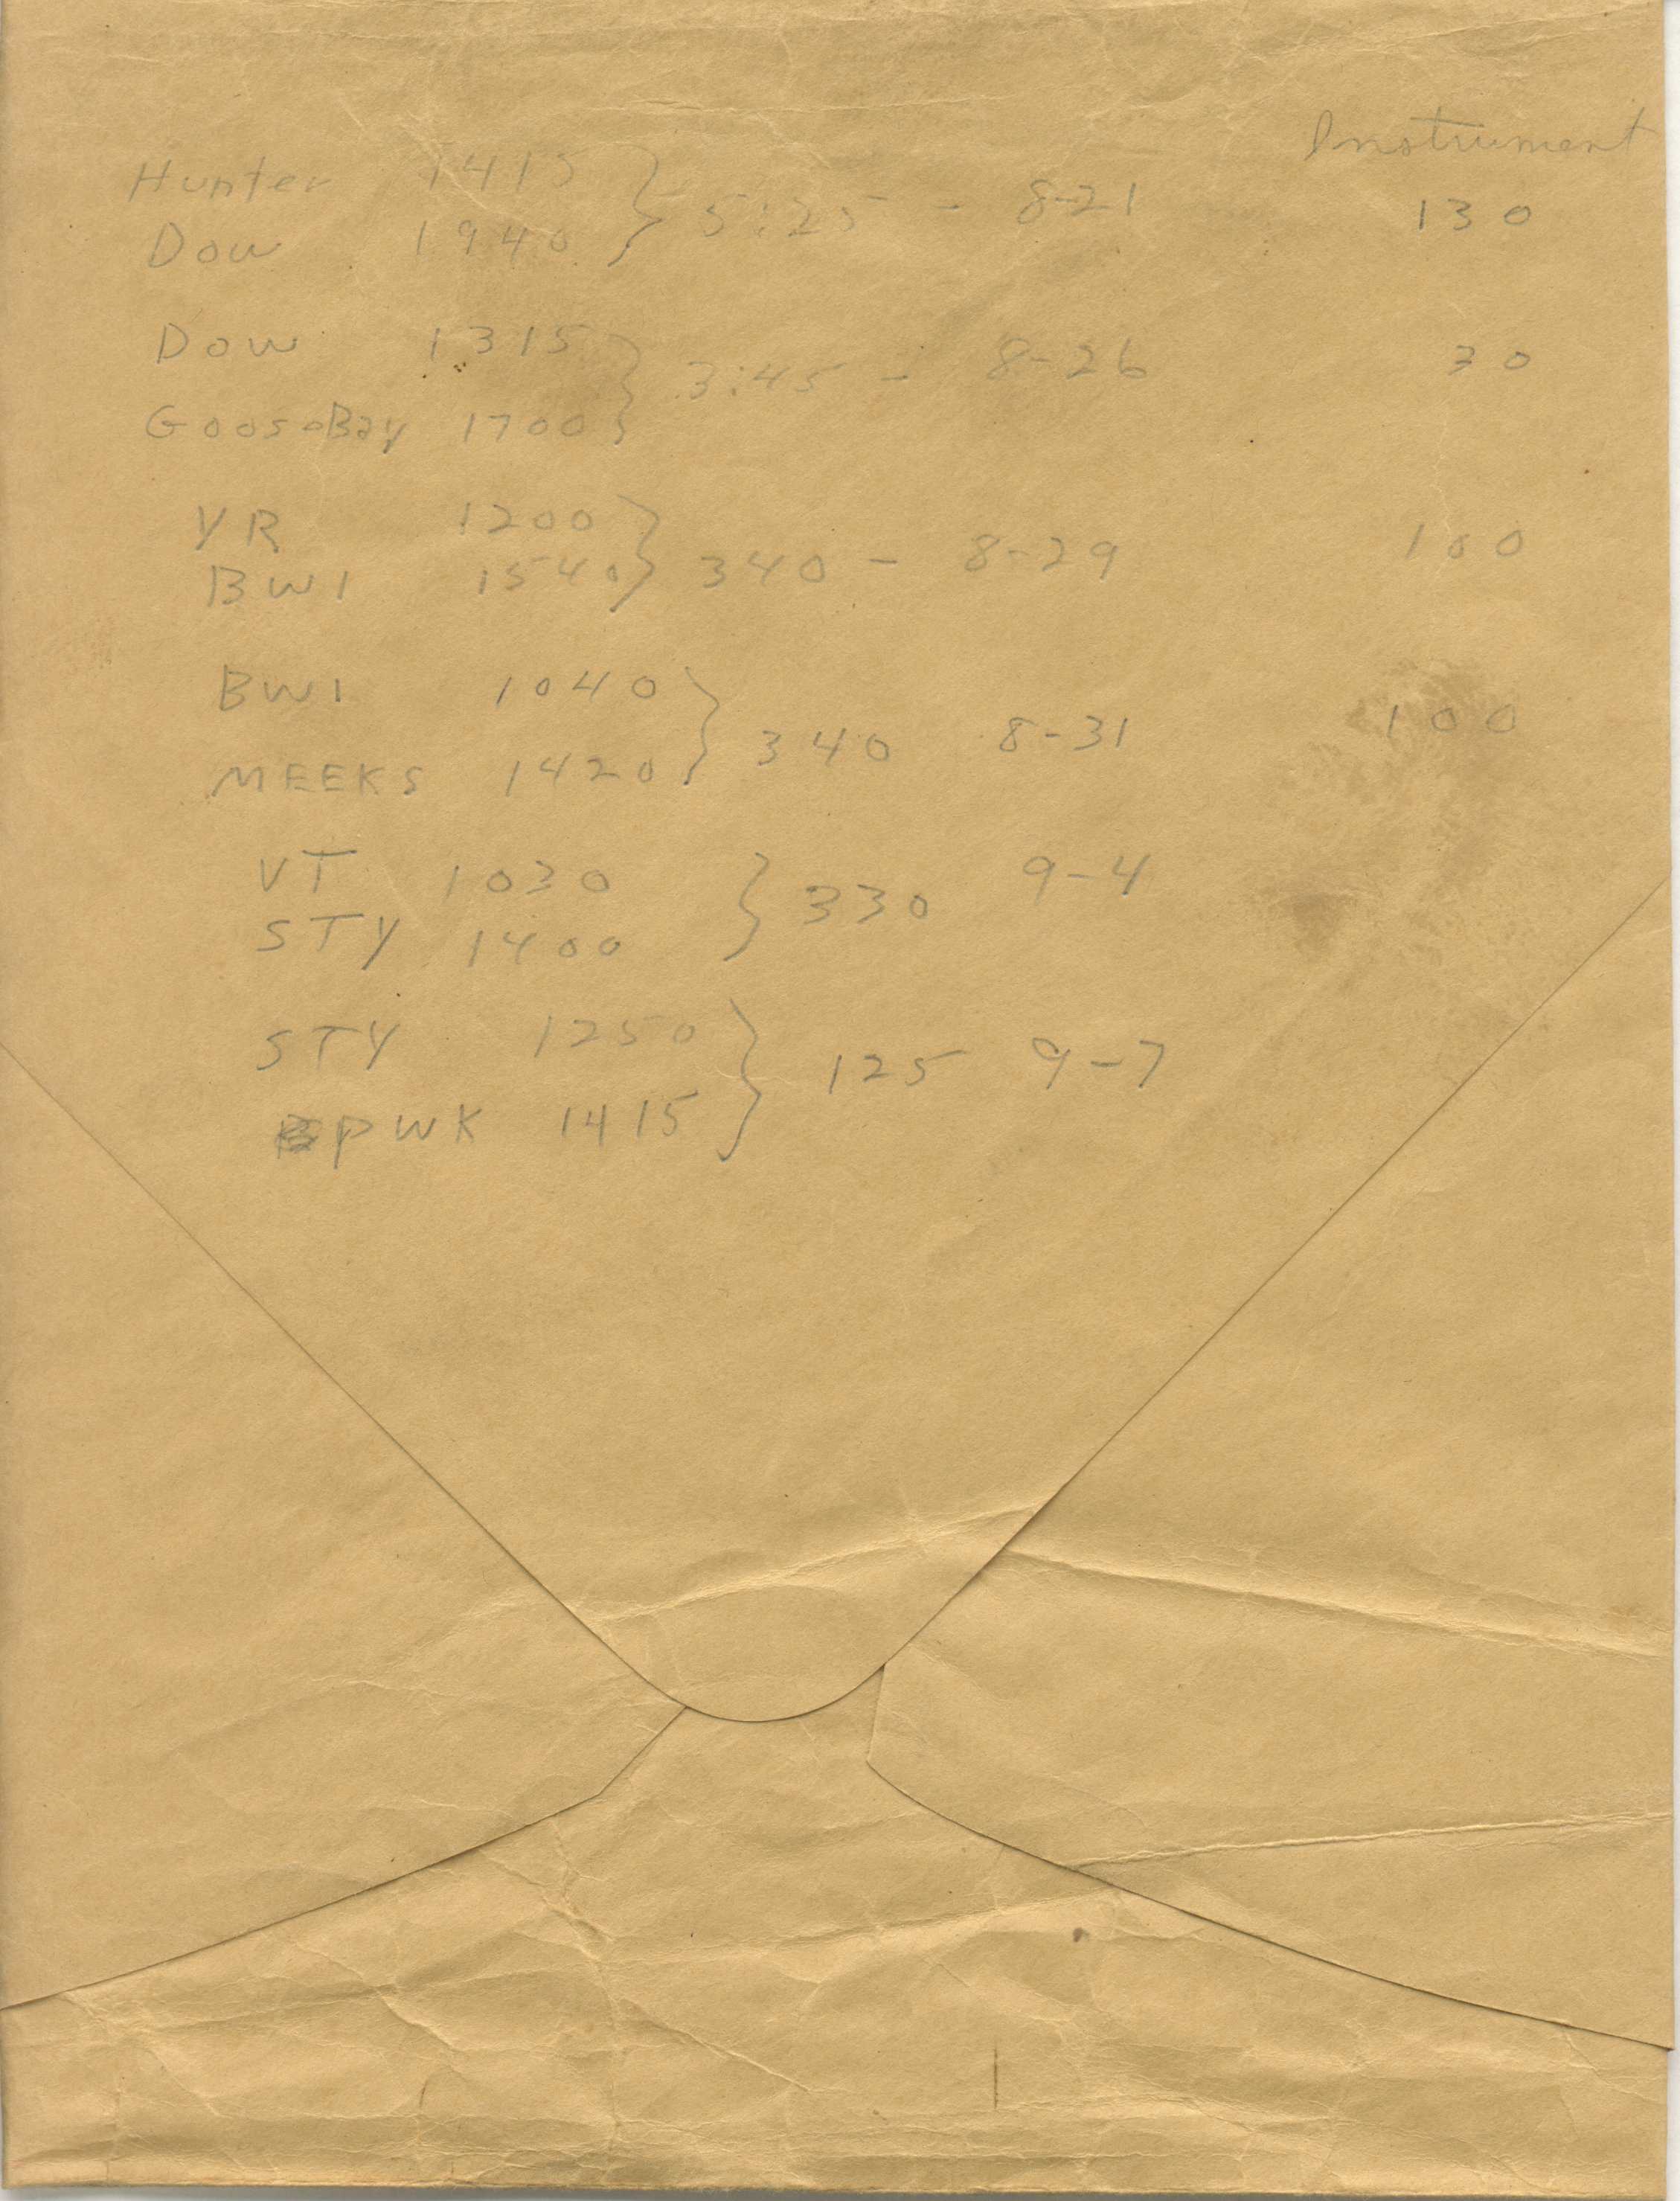 Instrument
Hunter 1415 } 5:25 - 8-21 130
Dow 1940
Dow 1315 } 3:45 - 8-26 30
GooseBay 1700
YR 1200 } 340 - 8-29 100
BW1 1540
BW1 1040 } 340 8-31 100
MEEKS 1420
VT 1030 } 330 9-4
STY 1400
STY 1250 } 125 9-7
PWK 1415